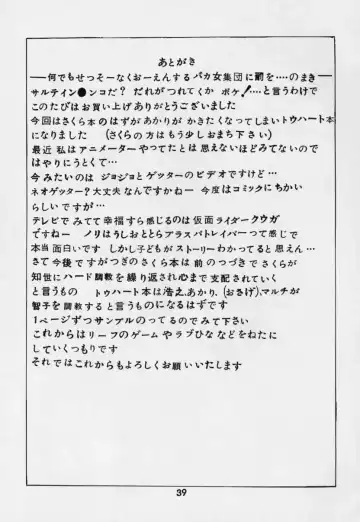 あとがき
――何でもせっそーなくおーえんするバカ女集団に罰を‥‥のまき―
サルテイン●ンコだ? だれがつれてくか ボケ!‥‥と言うわけで
このたびはお買い上げありがとうございました
今回はさくら本のはずがあかりがかきたくなってしまいトウハート本
になりました (さくらの方はもう少しおまち下さい)
最近 私はアニメーターやってたとは思えないほどみてないので
はやりにうとくて…
今みたいのは ジョジョとゲッターのビデオですけど…
ネオゲッター?大丈夫なんですかねー 今度はコミックにちかい
らしいですが…
テレビでみてて幸福すら感じるのは仮面ライダークウガ
ですねー ノリはうしおととらプラスパトレイバーって感じで
本当面白いです しかし子どもがストーリーわかってると思えん…
さて今後ですがつぎのさくら本は前のつづきでさくらが
知世にハード調教を繰り返され心まで支配されていく
と言うもの トウハート本は浩之、あかり、(おさげ)、マルチが
智子を調教すると言うものになるはずです
1ページずつサンプルのってるのでみて下さい
これからはリーフのゲームやラブひななどをねたに
していくつもりです
それではこれからもよろしくお願いいたします
39